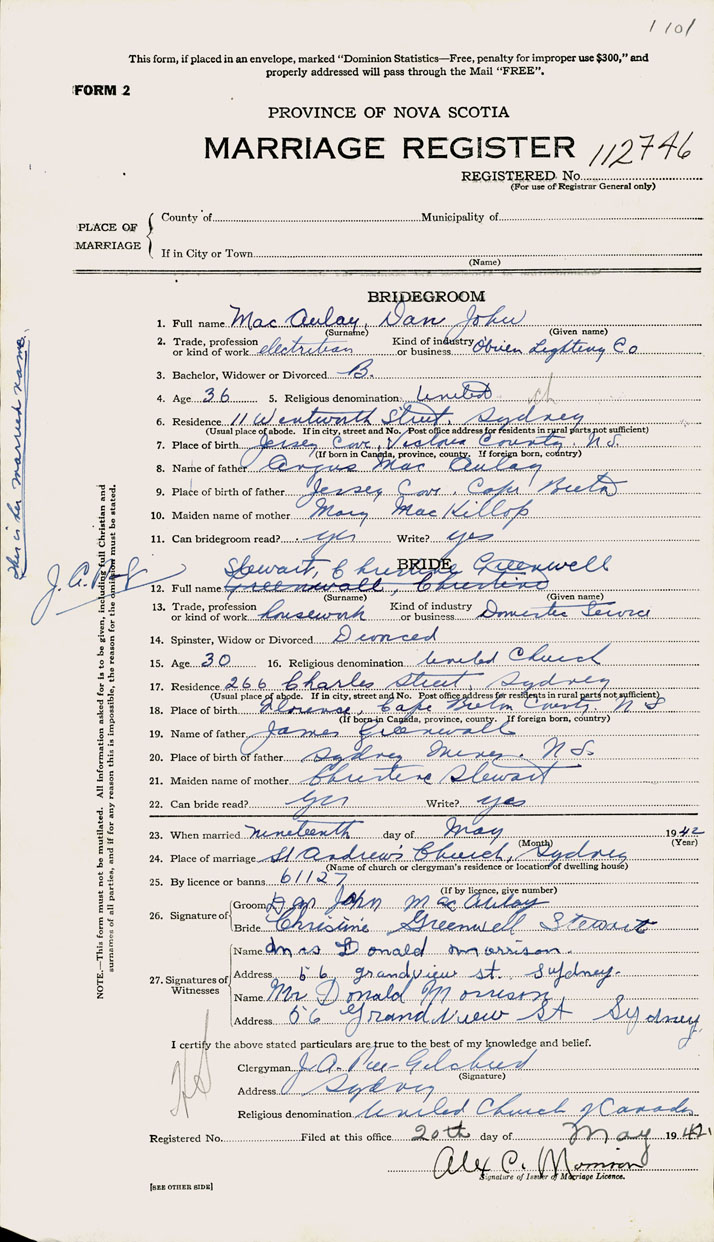 1101
This form, if placed in an envelope, marked "Dominion Statistics—Free, penalty for improper use $300," and
properly addressed will pass through the Mail "FREE".
FORM 2
PROVINCE OF NOVA SCOTIA
MARRIAGE REGISTER 112746
REGISTERED No.
(For use of Registrar General only)
PLACE OF MARRIAGE
County of Municipality of
If in City or Town
(Name)
BRIDEGROOM
1. Full name Mac Aulay, Dan John
(Surname) (Given name)
2. Trade, profession or kind of work electrition Kind of industry or business Obrien Lighting Co
3. Bachelor, Widower or Divorced B.
4. Age 36 5. Religious denomination United ch
6. Residence 11 Wentworth Street, Sydney
(Usual place of abode. If in city, street and No. Post office address for residents in rural parts not sufficient)
7. Place of birth Jersey Cove, Victoria County N.S.
(If born in Canada, province, county. If foreign born, country)
8. Name of father Angus Mac Aulay
9. Place of birth of father Jersey Cove, Cape Breton
10. Maiden name of mother Mary MacKillop
11. Can bridegroom read? yes Write? yes
BRIDE
Stewart, Christine Greenwell
12. Full name Greenwall, Christine
(Surname) (Given name)
13. Trade, profession or kind of work housework Kind of industry or business Domestic Service
14. Spinster, Widow or Divorced Divorced
15. Age 30 16. Religious denomination United Church
17. Residence 266 Charles Street Sydney
(Usual place of abode. If in city, street and No. Post office address for residents in rural parts not sufficient)
18. Place of birth Florence, Cape Breton County N S
(If born in Canada, province, county. If foreign born, country)
19. Name of father James Greenwall
20. Place of birth of father Sydney Mines, N S.
21. Maiden name of mother Christine Stewart
22. Can bride read? yes Write? yes
23. When married nineteenth day of May 1942
(Month) (Year)
24. Place of marriage St Andrew's Church, Sydney
(Name of church or clergyman's residence or location of dwelling house)
25. By licence or banns 61127
(If by licence, give number)
26. Signature of
Groom Dan John MacAulay
Bride Christine Greenwell Stewart
27. Signatures of Witnesses
Name Mrs Donald Morrison.
Address 56 grandview st. Sydney.
Name Mr Donald Morrison
Address 56 Grandview St Sydney
I certify the above stated particulars are true to the best of my knowledge and belief.
Clergyman J. A.
(Signature)
Address Sydney
Religious denomination United Church of Canada
Registered No. Filed at this office 20th day of May 1942.
Alex C. Morrison
Signature of Issuer of Marriage Licence.
[SEE OTHER SIDE]
This is her married name.
J. A.
NOTE.—This form must not be mutilated. All Information asked for is to be given, including full Christian and
surnames of all parties, and if for any reason this is impossible, the reason for the omission must be stated.